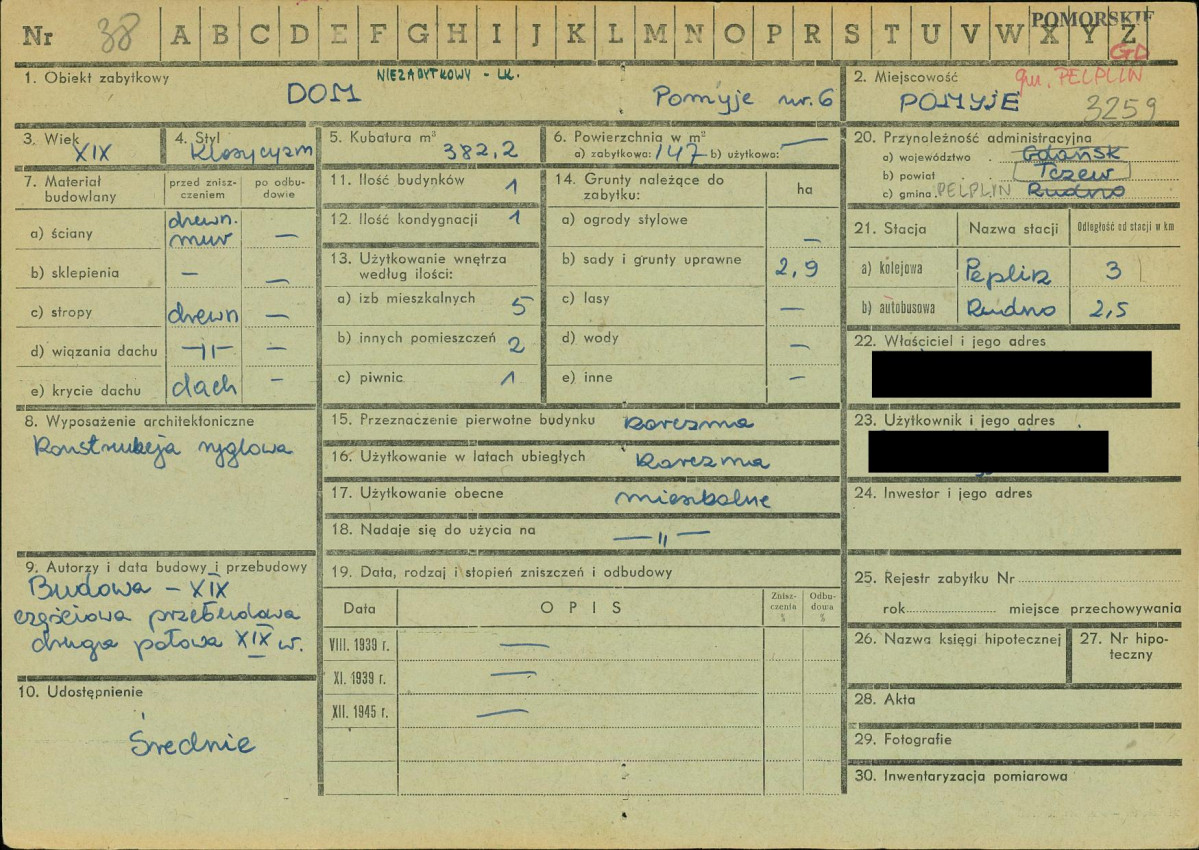 POMORSKIE
Nr 38 A B C D E F G H I J K L M N O P R S T U V W X Y Z
GD
1. Obiekt zabytkowy
NIEZABYTKOWY - ŁK.
DOM Pomyje nr. 6
2. Miejscowość
gm. PELPLIN
POMYJE 3259
3. Wiek
XIX
4. Styl
Klasycyzm
5. Kubatura m³
382,2
6. Powierzchnia w m²
a) zabytkowa: 147 b) użytkowa: —
7. Materiał budowlany
przed znisz-
czeniem
po odbu-
dowie
a) ściany drewn. —
mur
b) sklepienia — —
c) stropy drewn —
d) wiązania dachu —||— —
e) krycie dachu dach —
8. Wyposażenie architektoniczne
Konstrukcja ryglowa
9. Autorzy i data budowy i przebudowy
Budowa - XIX
częściowa przebudowa
druga połowa XIX w.
10. Udostępnienie
Średnie
11. Ilość budynków 1
12. Ilość kondygnacji 1
13. Użytkowanie wnętrza
według ilości:
a) izb mieszkalnych 5
b) innych pomieszczeń 2
c) piwnic 1
14. Grunty należące do
zabytku:
ha
a) ogrody stylowe —
b) sady i grunty uprawne 2,9
c) lasy —
d) wody —
e) inne —
15. Przeznaczenie pierwotne budynku karczma
16. Użytkowanie w latach ubiegłych Karczma
17. Użytkowanie obecne mieszkalne
18. Nadaje się do użycia na —||—
19. Data, rodzaj i stopień zniszczeń i odbudowy
Data
OPIS
Znisz-
czenia
%
Odbu-
dowa
%
VIII. 1939 r. —
XI. 1939 r. —
XII. 1945 r. —
20. Przynależność administracyjna
a) województwo Gdańsk
b) powiat Tczew
c) gmina PELPLIN Rudno
21. Stacja
Nazwa stacji
Odległość od stacji w km
a) kolejowa Peplin 3
b) autobusowa Rudno 2,5
22. Właściciel i jego adres
23. Użytkownik i jego adres
24. Inwestor i jego adres
25. Rejestr zabytku Nr
rok miejsce przechowywania
26. Nazwa księgi hipotecznej
27. Nr hipo-
teczny
28. Akta
29. Fotografie
30. Inwentaryzacja pomiarowa